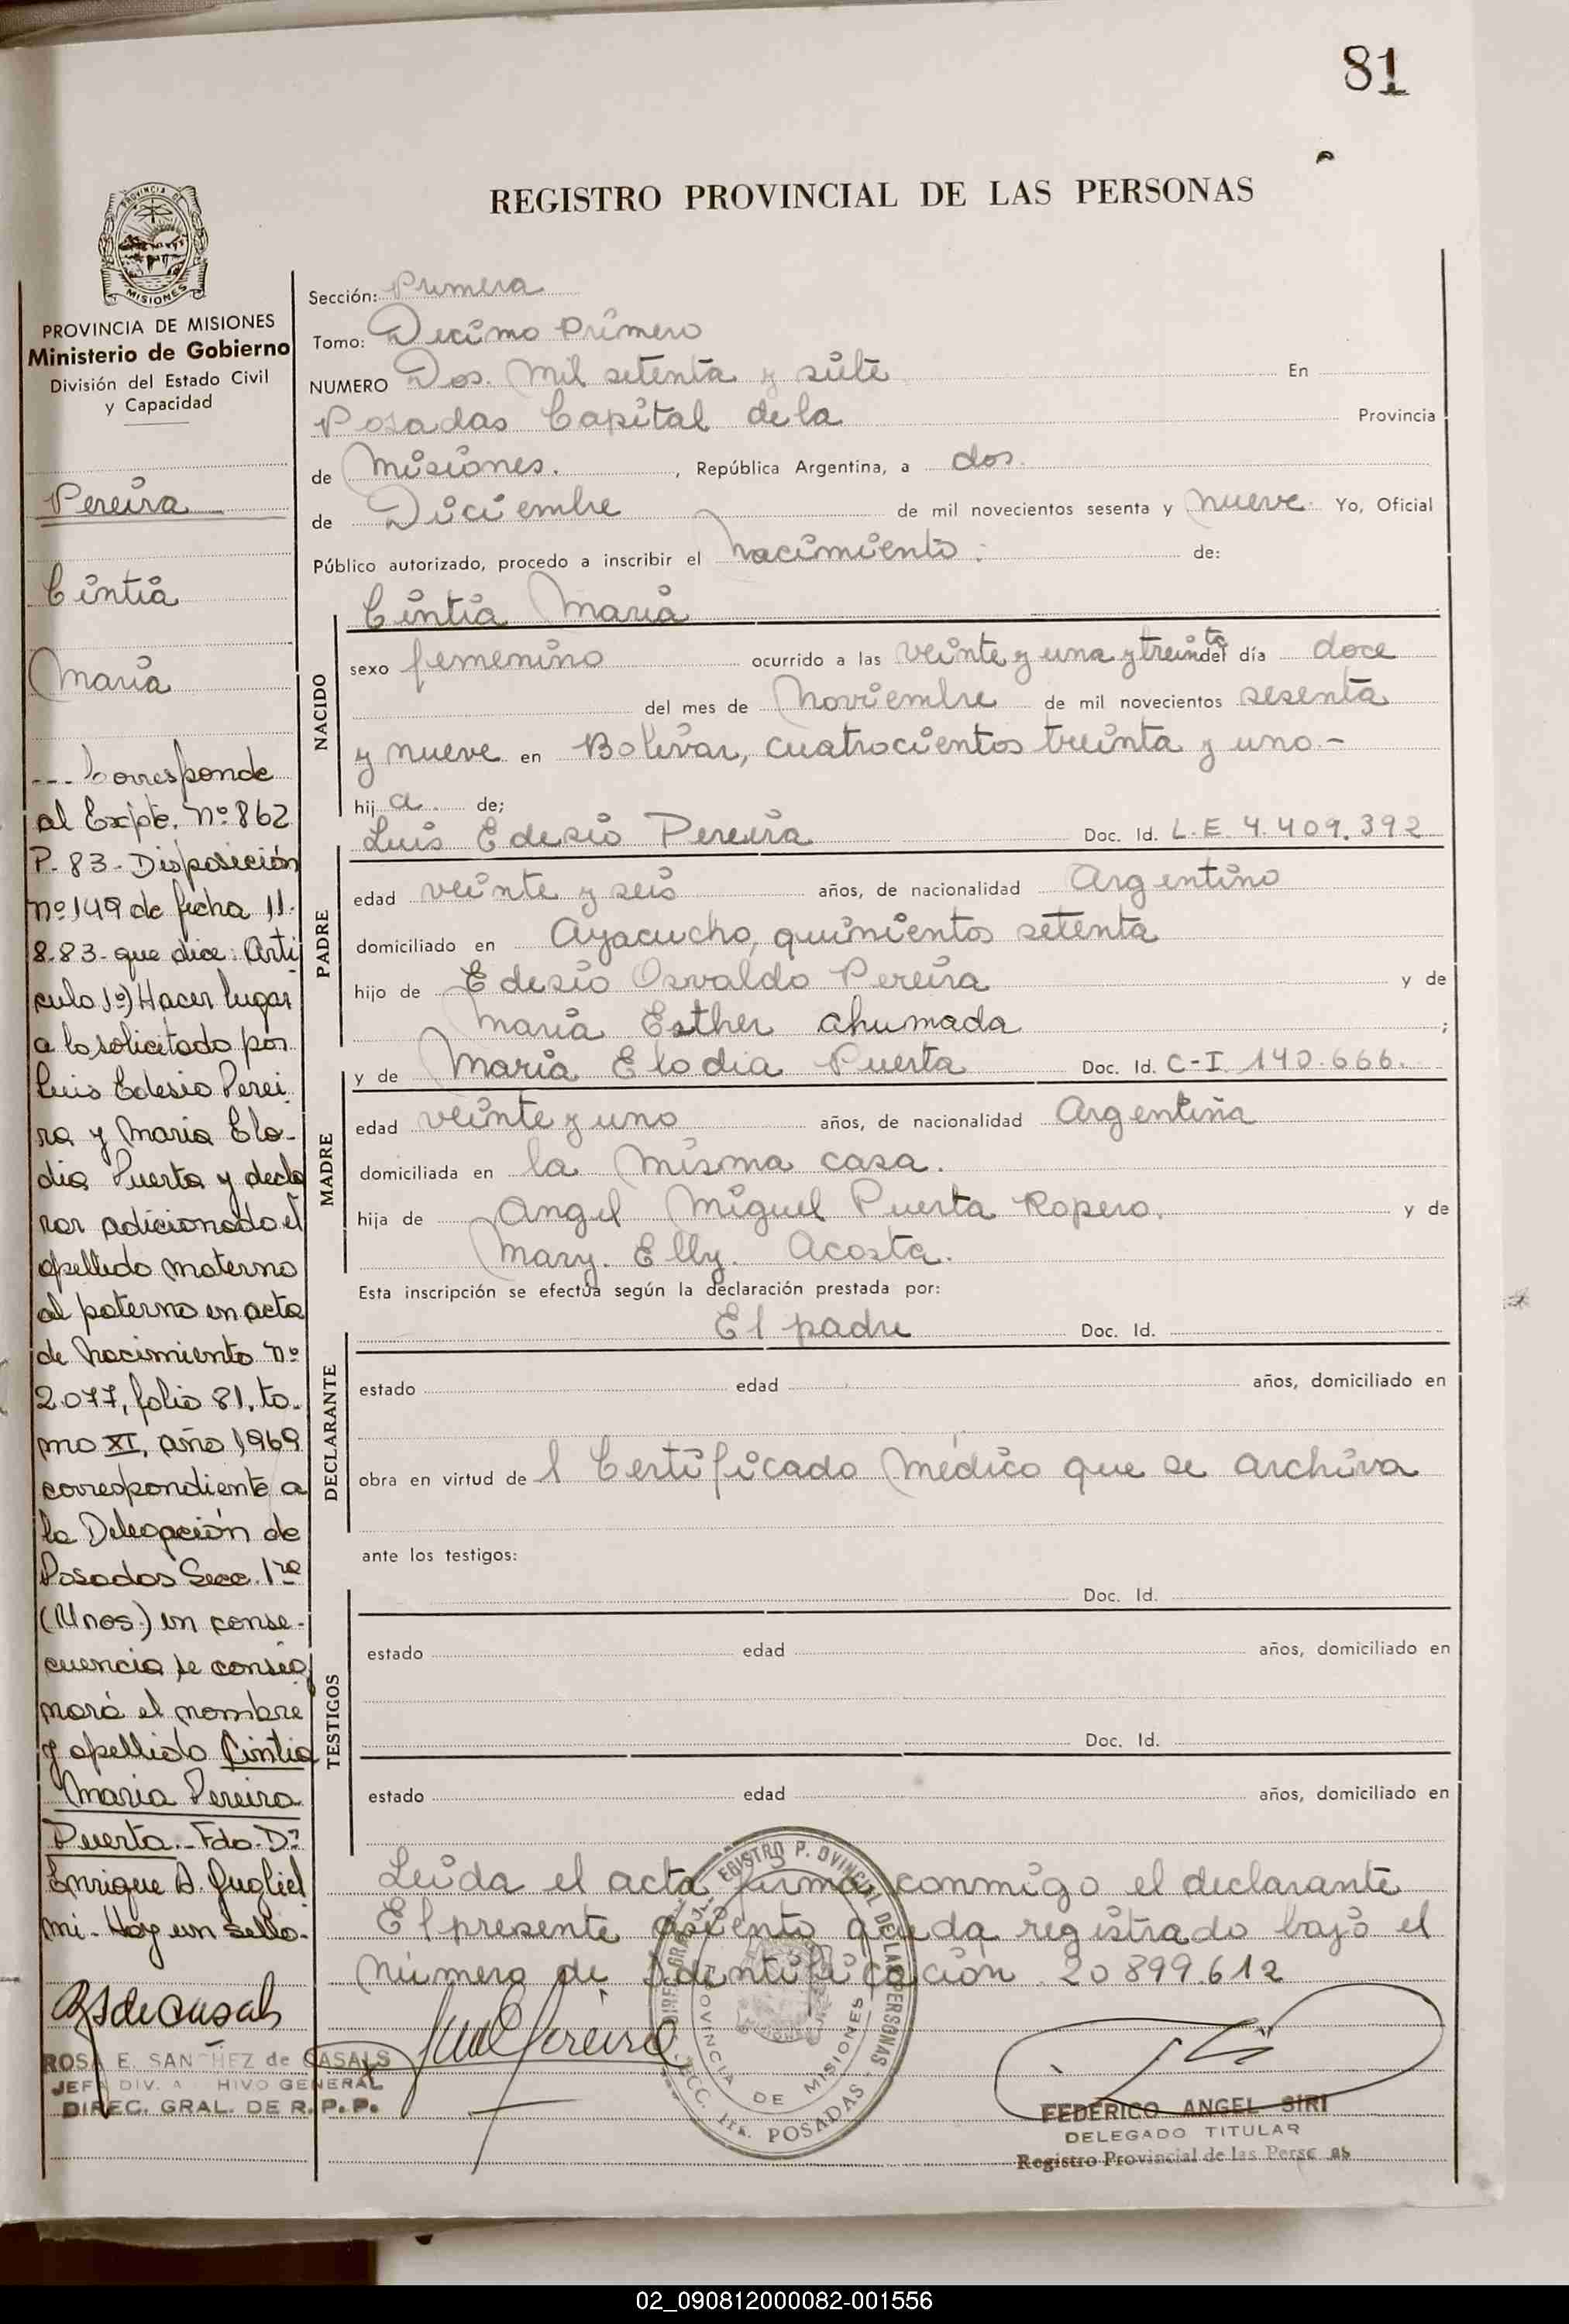 81
REGISTRO PROVINCIAL DE LAS PERSONAS
PROVINCIA DE
MISIONES
PROVINCIA DE MISIONES
Ministerio de Gobierno
División del Estado Civil
y Capacidad
Pereira
Cintia
Maria
--- Corresponde
al Expte. Nº 862
P. 83 - Disposición
nº 149 de fecha 11.
8-83- que dice: Arti
culo 1º) Hacer lugar
a lo solicitado por
Luis Edesio Perei
ra y Maria Elo-
dia Puerta y decla
rar adicionado el
apellido materno
al paterno en acta
de Nacimiento nº
2.077, folio 81, to-
mo XI, año 1969
correspondiente a
la Delegación de
Posadas Secc. 1ra
(Mnes.) en conse-
cuencia se consig
nará el nombre
y apellido Cintia
Maria Pereira
Puerta.- Fdo. Dn
Enrique A. Gugliel
mi - Hay un sello.
ROSA E. SANCHEZ de CASALS
JEFA DIV. ARCHIVO GENERAL
DIREC. GRAL. DE R. P. P.
Sección: Primera
Tomo: Decimo Primero
NUMERO Dos. Mil setenta y siete En
Posadas Capital de la Provincia
de Misiones. , República Argentina, a dos.
de Diciembre de mil novecientos sesenta y nueve Yo, Oficial
Público autorizado, procedo a inscribir el nacimiento. de:
Cintia Maria
NACIDO
sexo femenino ocurrido a las veinte y una y treinta del día doce
del mes de Noviembre de mil novecientos sesenta
y nueve en Bolivar, cuatrocientos treinta y uno.-
hij a. de;
Luis Edesio Pereira Doc. Id. L. E. 4.409.392
PADRE
edad veinte y seis años, de nacionalidad Argentino
domiciliado en Ayacucho, quinientos setenta
hijo de Edesio Osvaldo Pereira y de
Maria Esther ahumada ;
y de Maria Elodia Puerta Doc. Id. C-I. 140.666.
MADRE
edad veinte y uno años, de nacionalidad Argentina
domiciliada en la misma casa.
hija de Angel Miguel Puerta Ropero. y de
Mary. Elly. Acosta.
Esta inscripción se efectúa según la declaración prestada por:
El padre Doc. Id.
DECLARANTE
estado edad años, domiciliado en
obra en virtud de l Certificado Médico que se archiva
ante los testigos:
Doc. Id.
TESTIGOS
estado edad años, domiciliado en
Doc. Id.
estado edad años, domiciliado en
Leida el acta firma conmigo el declarante
El presente asiento queda registrado bajo el
número de identificación 20899.612
PROVINCIA DE MISIONES
POSADAS
FEDERICO ANGEL SIRI
DELEGADO TITULAR
Registro Provincial de las Personas
02_090812000082-001556